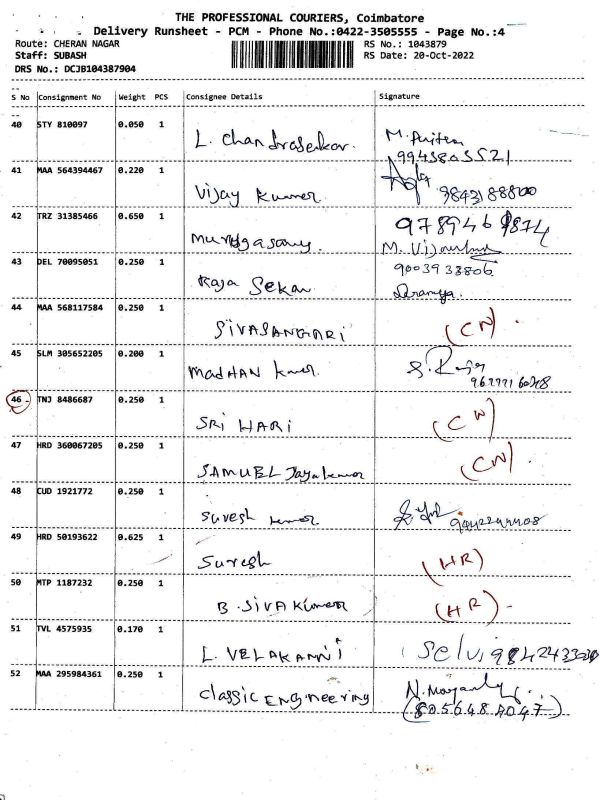 THE PROFESSIONAL COURIERS, Coimbatore
Delivery Runsheet - PCM - Phone No.:0422-3505555 - Page No.:4
Route: CHERAN NAGAR RS No.: 1043879
Staff: SUBASH RS Date: 20-Oct-2022
DRS No.: DCJB104387904
S No Consignment No Weight PCS Consignee Details Signature
40 STY 810097 0.050 1 L. Chandrasekar.
9943803521
41 MAA 564394467 0.220 1 Vijay Kumar 9843188800
42 TRZ 31385466 0.650 1 Murugasamy.
43 DEL 70095051 0.250 1 Raja Sekar 9003933806
44 MAA 568117584 0.250 1 SIVASANGARI (CN).
45 SLM 305652205 0.200 1 MADHAN Kumar
46 TNJ 8486687 0.250 1 SRI HARI (CN)
47 HRD 360067205 0.250 1 SAMUEL Jayakumar (CN).
48 CUD 1921772 0.250 1 Suresh Kumar
49 HRD 50193622 0.625 1 Suresh (HR)
50 MTP 1187232 0.250 1 B. SIVA Kumar (HR)-
51 TVL 4575935 0.170 1 L. VELAKANNI Selvi
52 MAA 295984361 0.250 1 Classic ENGineering